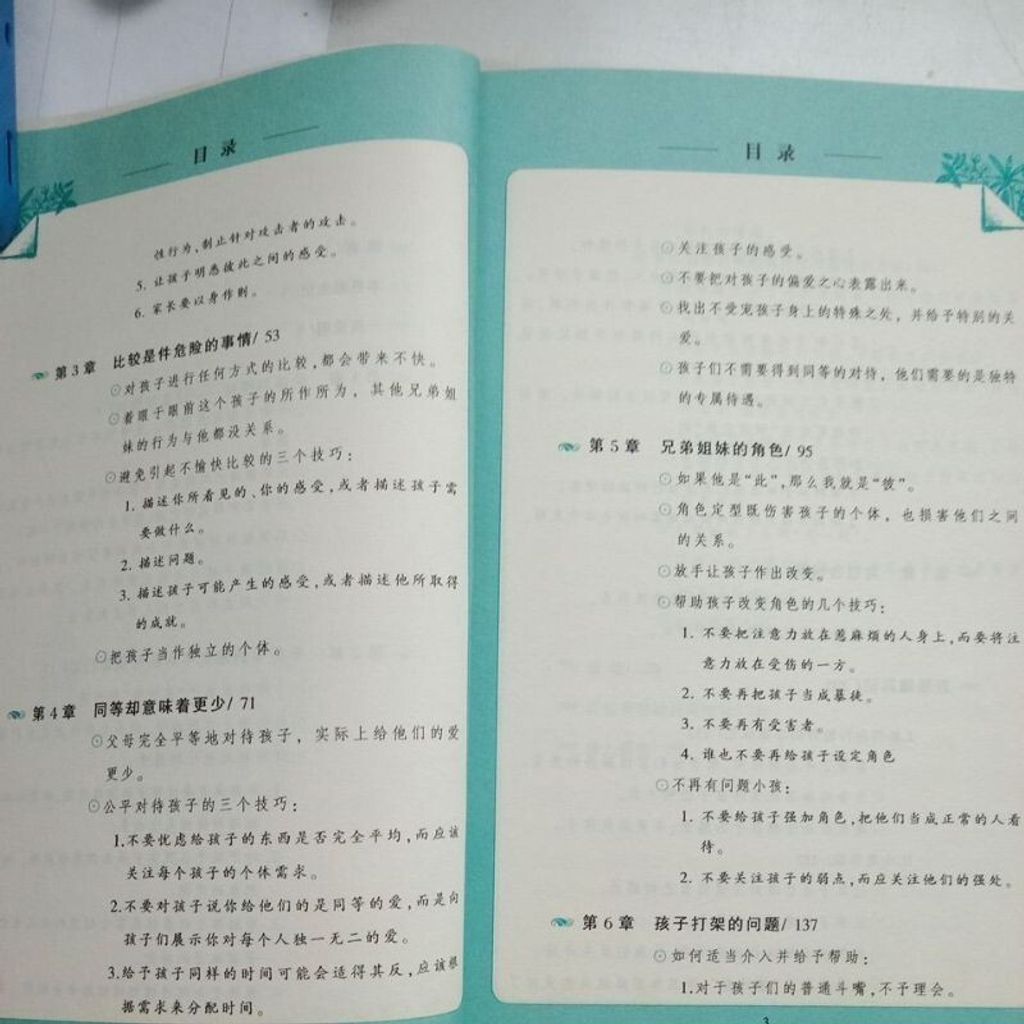 目录
性行为,制止针对攻击者的攻击。
5. 让孩子明悉彼此之间的感受。
6. 家长要以身作则。
第3章 比较是件危险的事情/ 53
⊙对孩子进行任何方式的比较,都会带来不快。
⊙着眼于眼前这个孩子的所作所为，其他兄弟姐
妹的行为与他都没关系。
⊙避免引起不愉快比较的三个技巧：
1. 描述你所看见的、你的感受,或者描述孩子需
要做什么。
2. 描述问题。
3. 描述孩子可能产生的感受,或者描述他所取得
的成就。
⊙把孩子当作独立的个体。
第4章 同等却意味着更少/ 71
⊙父母完全平等地对待孩子，实际上给他们的爱
更少。
⊙公平对待孩子的三个技巧：
1.不要忧虑给孩子的东西是否完全平均,而应该
关注每个孩子的个体需求。
2.不要对孩子说你给他们的是同等的爱,而是向
孩子们展示你对每个人独一无二的爱。
3.给予孩子同样的时间可能会适得其反,应该根
据需求来分配时间。
目录
⊙关注孩子的感受。
⊙不要把对孩子的偏爱之心表露出来。
⊙找出不受宠孩子身上的特殊之处，并给予特别的关
爱。
⊙孩子们不需要得到同等的对待，他们需要的是独特
的专属待遇。
第5章 兄弟姐妹的角色/ 95
⊙如果他是“此”,那么我就是“彼”。
⊙角色定型既伤害孩子的个体，也损害他们之间
的关系。
⊙放手让孩子作出改变。
⊙帮助孩子改变角色的几个技巧：
1. 不要把注意力放在惹麻烦的人身上,而要将注
意力放在受伤的一方。
2. 不要再把孩子当成暴徒。
3. 不要再有受害者。
4. 谁也不要再给孩子设定角色
⊙不再有问题小孩：
1. 不要给孩子强加角色,把他们当成正常的人看
待。
2. 不要关注孩子的弱点,而应关注他们的强处。
第6章 孩子打架的问题/ 137
⊙如何适当介入并给予帮助：
1.对于孩子们的普通斗嘴,不予理会。
3